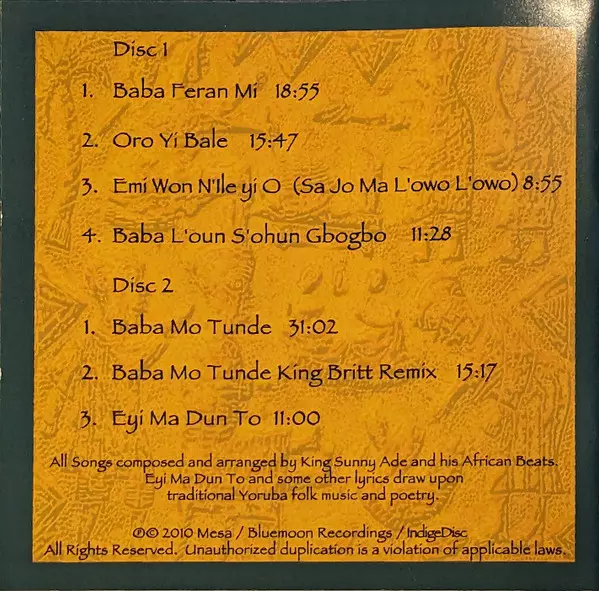 Disc 1
1. Baba Feran Mi 18:55
2. Oro Yi Bale 15:47
3. Emi Won N'Ile yi O (Sa Jo Ma L'owo L'owo) 8:55
4. Baba L'oun S'ohun Gbogbo 11:28
Disc 2
1. Baba Mo Tunde 31:02
2. Baba Mo Tunde King Britt Remix 15:17
3. Eyi Ma Dun To 11:00
All Songs composed and arranged by King Sunny Ade and his African Beats.
Eyi Ma Dun To and some other lyrics draw upon
traditional Yoruba folk music and poetry.
℗© 2010 Mesa / Bluemoon Recordings / IndigeDisc
All Rights Reserved. Unauthorized duplication is a violation of applicable laws.